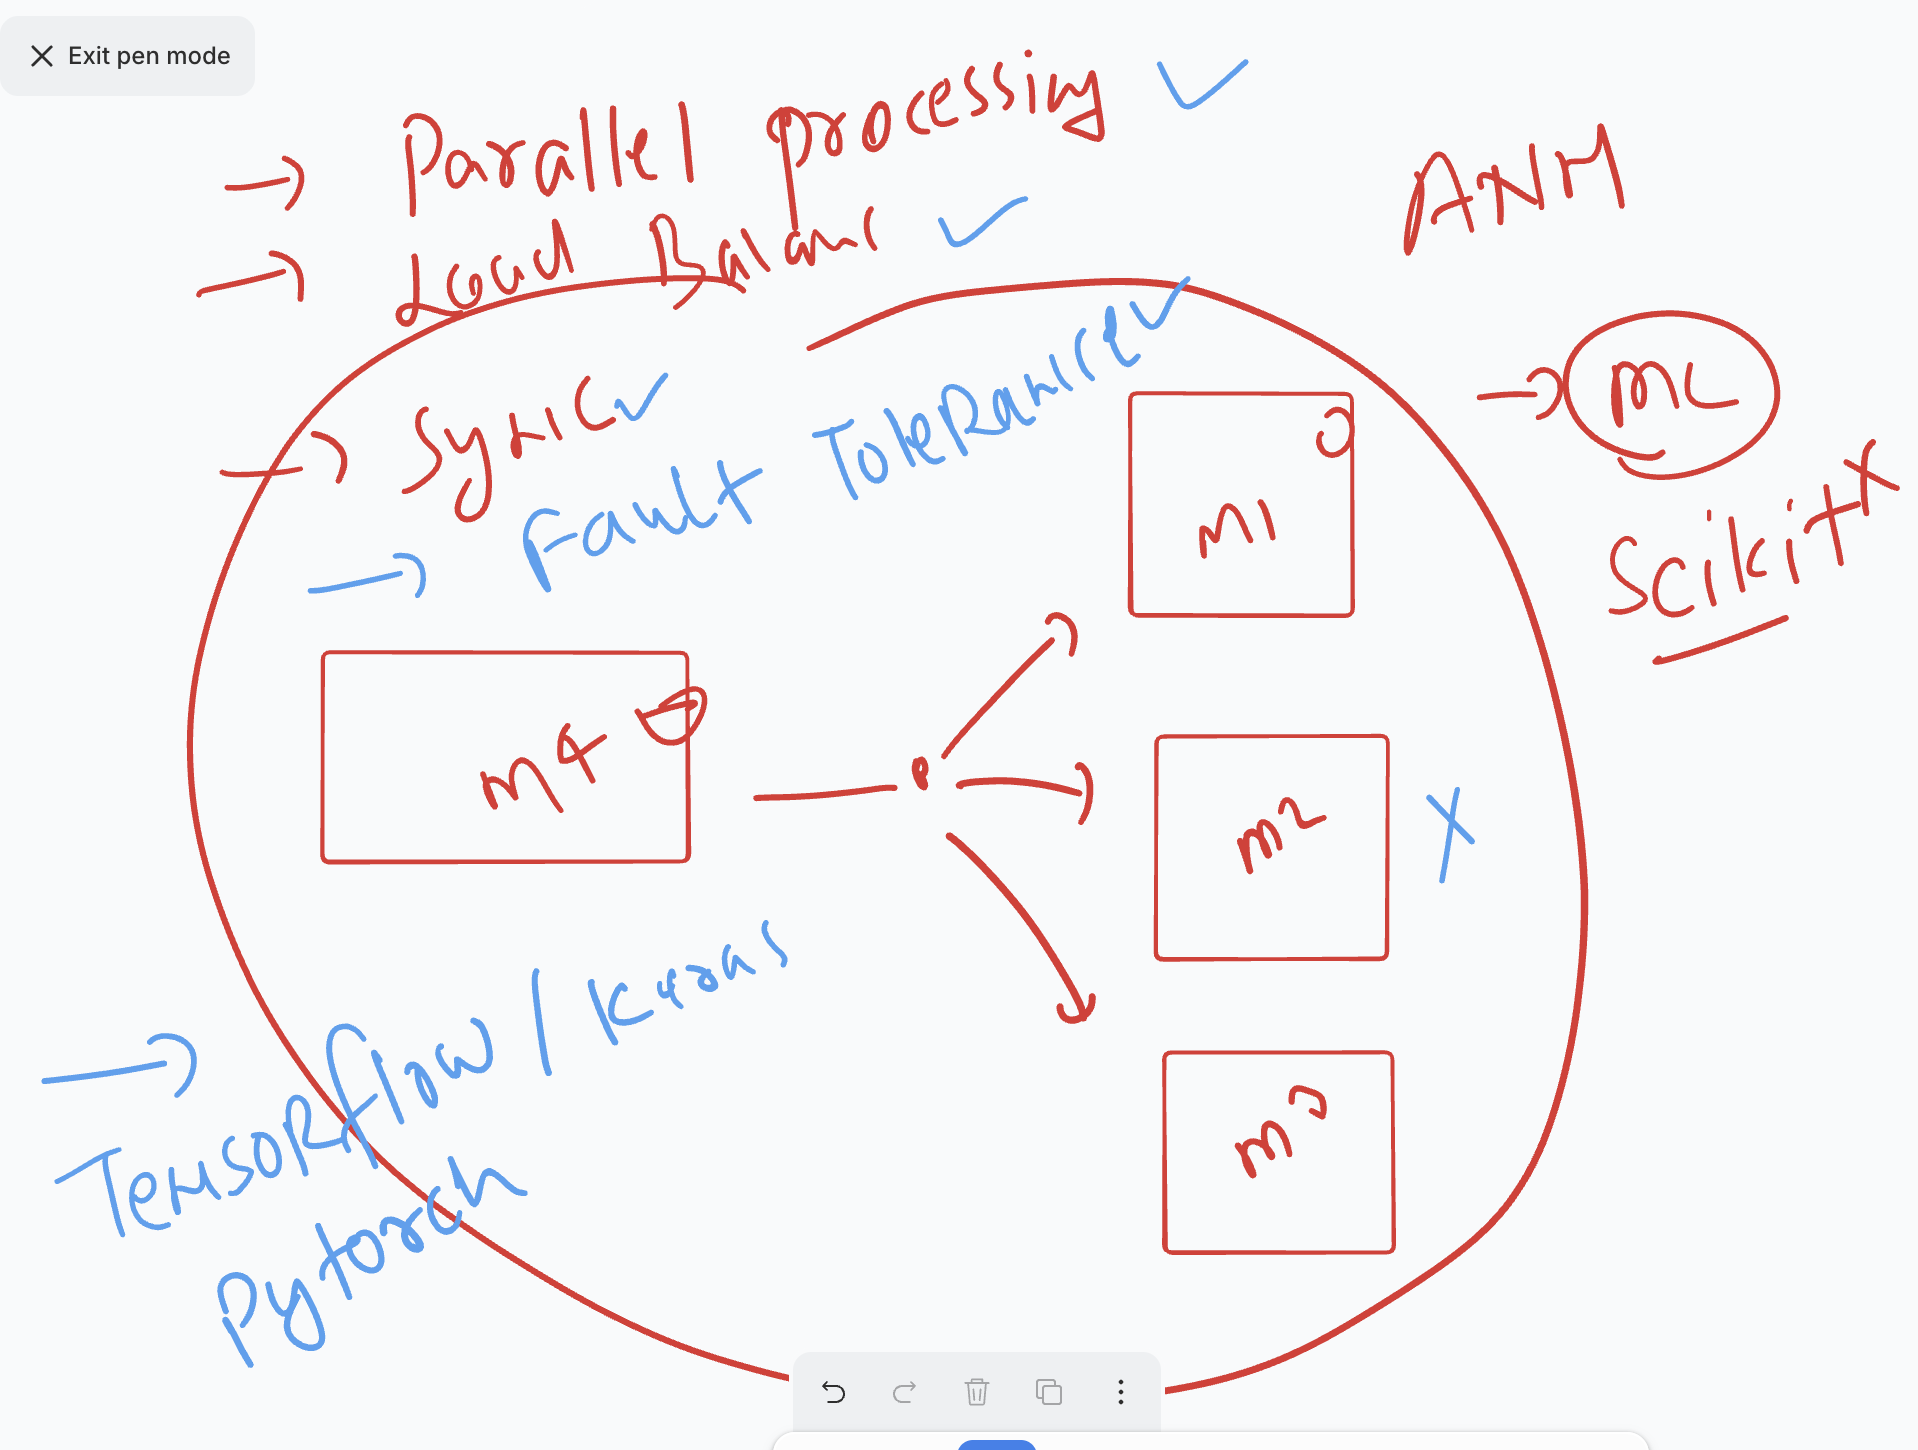 Exit pen mode
→ Parallel processing ✓
→ Load Balanc ✓
ANN
→ Sync ✓
→ Fault Tolerance ✓
→ ML
Scikit X
M1
M4
M2 X
M3
→ Tensorflow / Keras
Pytorch